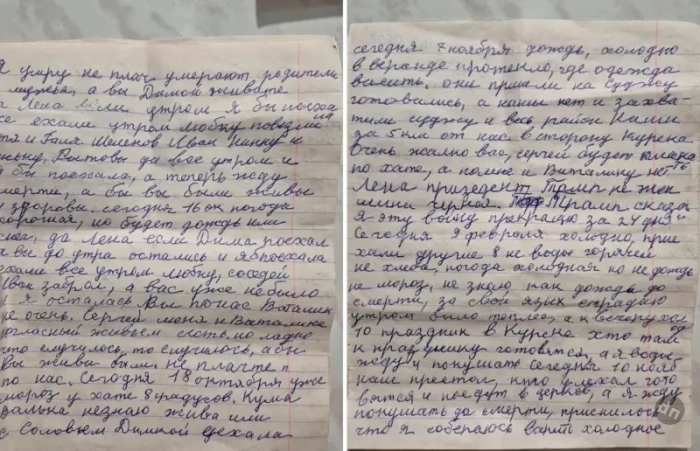 я умру не плач умерают родители
а вы Димой живите
а Лена если утром я бы поеха
се ехали утром Любку повезли
и Галя Ивана Иван Нинку и
Ростовы да все утром и
я бы поехала, а теперь жду
мерти, а бы вы были живые
здоровы. сегодня 16 ок погода
хорошая, но будет дождь или
снег, да Лена если Дима поехал
а вы до утра остались и я б поехала
ехали все утром Любку, соседей
Иван забрал, а вас уже не было
и я осталась Вы по нас Ваталик
не очень. Сергей меня и Ваталика
живьем съесть, но ладно
что случилось, то случилось, а бы
вы живи были не плачте п
по нас. Сегодня 18 октября уже
мороз у хате 8 градусов. Кума
ралька незнаю жива или
с Соловьем Димкой уехала
сегодня 7 ноября дождь, холодно
в веранде протекло, где одежда
висить. они пришли на Суджу
готовились, а наши нет и захва
тили суджу и весь район Кими
за 5 км от нас в сторону Курска
Очень жалко вас, сергей будет плака
по хате, а по мне и Виталику нет
Лена призедент Трамп не жен
щина черная. Трамп сказал
я эту войну прекращу за 24 дня
Сегодня 9 февраля холодно, прие
хали другие 8 не воды горячей
не хлеба, погода холодная но не дождь
не мороз, не знаю как дождь до
смерти, за свой язык страдаю
утром было теплее, а к вечеру хол
10 праздник в Курске хто там
к празднику готовится, а я воды
жду и покушать Сегодня 10 нояб
наш престол, кто уехал гото
вятся и поедут в церков, а я жду
покушать до смерти, приснилось
что я собераюсь варить холодное
dn